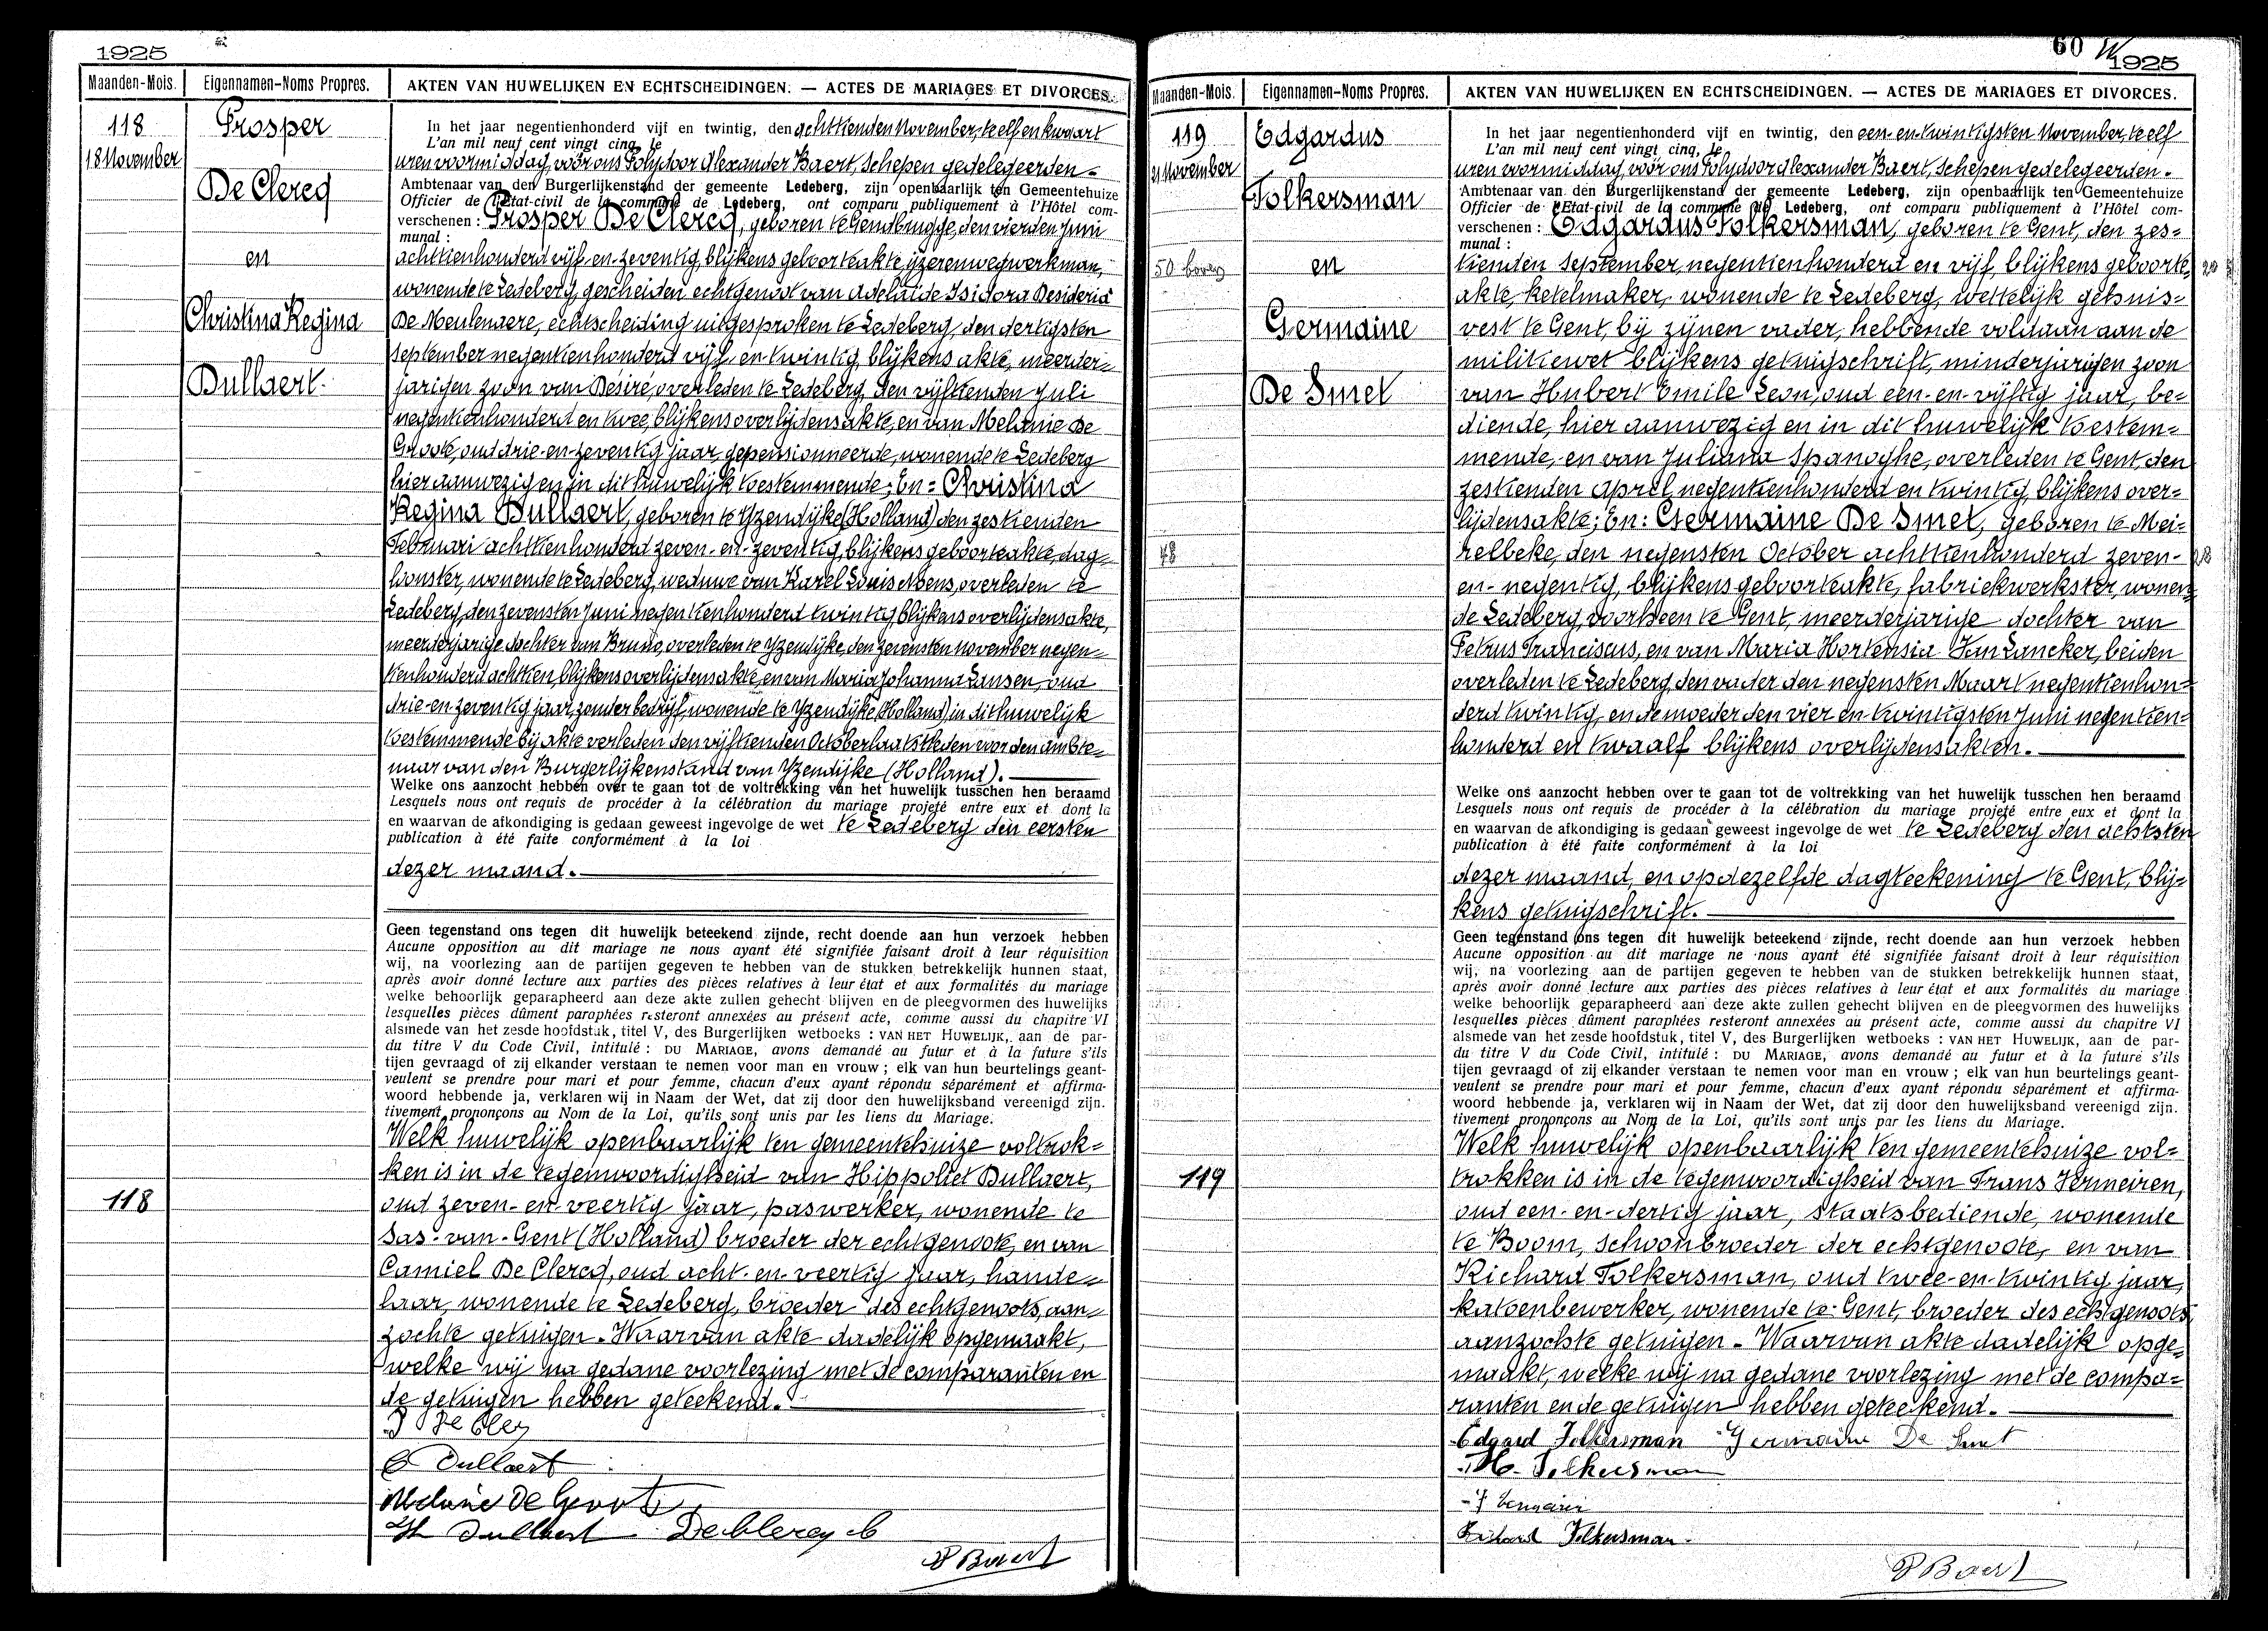 1925
Maanden-Mois. Eigennamen-Noms Propres. AKTEN VAN HUWELIJKEN EN ECHTSCHEIDINGEN. — ACTES DE MARIAGES ET DIVORCES.
118
18 November
Prosper
De Clercq
en
Christina Regina
Dullaert
In het jaar negentienhonderd vijf en twintig, den achttienden November, te elf en kwart
L'an mil neuf cent vingt cinq, le
uren voormiddag, voor ons Polydoor Alexander Baert, Schepen gedelegeerden -
Ambtenaar van den Burgerlijkenstand der gemeente Ledeberg, zijn openbaarlijk ten Gemeentehuize
Officier de l'Etat-civil de la commune de Ledeberg, ont comparu publiquement à l'Hôtel com-
verschenen : Prosper De Clercq, geboren te Gendbrugge, den vierden Juni
munal :
achttienhonderd vijf-en-zeventig, blijkens geboorteakte, ijzerenwegwerkman,
wonende te Ledeberg, gescheiden echtgenoot van Adelaïde Isidora Desideria
De Meulenaere, echtscheiding uitgesproken te Ledeberg, den dertigsten
September negentienhonderd vijf-en-twintig, blijkens akte, meerder=
jarigen zoon van Désiré, overleden te Ledeberg, den vijftienden Juli
negentienhonderd en twee, blijkens overlijdensakte, en van Melanie De
Groote, oud drie-en-zeventig jaar, gepensionneerde, wonende te Ledeberg
hier aanwezig en in dit huwelijk toestemmende; En: Christina
Regina Dullaert, geboren te Yzendijke (Holland) den zestienden
Februari achttienhonderd zeven-en-zeventig, blijkens geboorteakte, dag=
loonster, wonende te Ledeberg, weduwe van Karel Louis Mens, overleden te
Ledeberg, den zevensten Juni negentienhonderd twintig, blijkens overlijdensakte,
meerderjarige dochter van Bruno, overleden te Yzendijke, den zevensten November negen=
tienhonderd achttien, blijkens overlijdensakte, en van Maria Johanna Lansen, oud
drie-en-zeventig jaar, zonder bedrijf, wonende te Yzendijke (Holland) in dit huwelijk
toestemmende bij akte verleden den vijftienden October laatstleden voor den ambte=
naar van den Burgerlijkenstand van Yzendijke (Holland).
Welke ons aanzocht hebben over te gaan tot de voltrekking van het huwelijk tusschen hen beraamd
Lesquels nous ont requis de procéder à la célébration du mariage projeté entre eux et dont la
en waarvan de afkondiging is gedaan geweest ingevolge de wet te Ledeberg den eersten
publication à été faite conformément à la loi
dezer maand.
Geen tegenstand ons tegen dit huwelijk beteekend zijnde, recht doende aan hun verzoek hebben
Aucune opposition au dit mariage ne nous ayant été signifiée faisant droit à leur réquisition
wij, na voorlezing aan de partijen gegeven te hebben van de stukken betrekkelijk hunnen staat,
après avoir donné lecture aux parties des pièces relatives à leur état et aux formalités du mariage
welke behoorlijk geparapheerd aan deze akte zullen gehecht blijven en de pleegvormen des huwelijks
lesquelles pièces dûment paraphées resteront annexées au présent acte, comme aussi du chapitre VI
alsmede van het zesde hoofdstuk, titel V, des Burgerlijken wetboeks : VAN HET HUWELIJK, aan de par-
du titre V du Code Civil, intitulé : DU MARIAGE, avons demandé au futur et à la future s'ils
tijen gevraagd of zij elkander verstaan te nemen voor man en vrouw ; elk van hun beurtelings geant-
veulent se prendre pour mari et pour femme, chacun d'eux ayant répondu séparément et affirma-
woord hebbende ja, verklaren wij in Naam der Wet, dat zij door den huwelijksband vereenigd zijn.
tivement prononçons au Nom de la Loi, qu'ils sont unis par les liens du Mariage.
Welk huwelijk openbaarlijk ten gemeentehuize voltrok=
ken is in de tegenwoordigheid van Hippoliet Dullaert,
118
oud zeven-en-veertig jaar, paswerker, wonende te
Sas-van-Gent (Holland) broeder der echtgenoote, en van
Camiel De Clercq, oud acht-en-veertig jaar, hande=
laar, wonende te Ledeberg, broeder des echtgenoots, aan=
zochte getuigen. Waarvan akte dadelijk opgemaakt,
welke wij na gedane voorlezing met de comparanten en
de getuigen hebben geteekend.
C Dullaert
Melanie De Groote
H Dullaert Declercq C
P Baert
60
1925
Maanden-Mois. Eigennamen-Noms Propres. AKTEN VAN HUWELIJKEN EN ECHTSCHEIDINGEN. — ACTES DE MARIAGES ET DIVORCES.
119
21 November
Edgardus
Folkersman
en
Germaine
De Smet
In het jaar negentienhonderd vijf en twintig, den een-en-twintigsten November, te elf
L'an mil neuf cent vingt cinq, le
uren voormiddag, voor ons Polydoor Alexander Baert, Schepen gedelegeerden.
Ambtenaar van den Burgerlijkenstand der gemeente Ledeberg, zijn openbaarlijk ten Gemeentehuize
Officier de l'Etat-civil de la commune de Ledeberg, ont comparu publiquement à l'Hôtel com-
verschenen : Edgardus Folkersman, geboren te Gent, den zes=
munal :
tienden September, negentienhonderd en vijf, blijkens geboorte,
akte, ketelmaker, wonende te Ledeberg, wettelijk gehuis=
vest te Gent, bij zijnen vader, hebbende voldaan aan de
militiewet blijkens getuigschrift, minderjarigen zoon
van Hubert Emile Leon, oud een-en-vijftig jaar, be=
diende, hier aanwezig en in dit huwelijk toestem=
mende, en van Juliana Spanoghe, overleden te Gent, den
zestienden April negentienhonderd en twintig, blijkens over=
lijdensakte; En: Germaine De Smet, geboren te Mei=
48
relbeke, den negensten October achttienhonderd zeven-
en-negentig, blijkens geboorteakte, fabriekwerkster, wonen=
de Ledeberg, voorheen te Gent, meerderjarige dochter van
Petrus Franciscus, en van Maria Hortensia Van Lancker, beiden
overleden te Ledeberg, den vader den negensten Maart negentienhon=
derd twintig, en de moeder den vier en twintigsten Juni negentien=
honderd en twaalf blijkens overlijdensakten.
Welke ons aanzocht hebben over te gaan tot de voltrekking van het huwelijk tusschen hen beraamd
Lesquels nous ont requis de procéder à la célébration du mariage projeté entre eux et dont la
en waarvan de afkondiging is gedaan geweest ingevolge de wet te Ledeberg den achtsten
publication à été faite conformément à la loi
dezer maand, en op dezelfde dagteekening te Gent, blij=
kens getuigschrift.
Geen tegenstand ons tegen dit huwelijk beteekend zijnde, recht doende aan hun verzoek hebben
Aucune opposition au dit mariage ne nous ayant été signifiée faisant droit à leur réquisition
wij, na voorlezing aan de partijen gegeven te hebben van de stukken betrekkelijk hunnen staat,
après avoir donné lecture aux parties des pièces relatives à leur état et aux formalités du mariage
welke behoorlijk geparapheerd aan deze akte zullen gehecht blijven en de pleegvormen des huwelijks
lesquelles pièces dûment paraphées resteront annexées au présent acte, comme aussi du chapitre VI
alsmede van het zesde hoofdstuk, titel V, des Burgerlijken wetboeks : VAN HET HUWELIJK, aan de par-
du titre V du Code Civil, intitulé : DU MARIAGE, avons demandé au futur et à la future s'ils
tijen gevraagd of zij elkander verstaan te nemen voor man en vrouw ; elk van hun beurtelings geant-
veulent se prendre pour mari et pour femme, chacun d'eux ayant répondu séparément et affirma-
woord hebbende ja, verklaren wij in Naam der Wet, dat zij door den huwelijksband vereenigd zijn.
tivement prononçons au Nom de la Loi, qu'ils sont unis par les liens du Mariage.
Welk huwelijk openbaarlijk ten gemeentehuize vol=
119
trokken is in de tegenwoordigheid van Frans Vermeiren,
oud een-en-dertig jaar, staatsbediende, wonende
te Boom, schoonbroeder der echtgenoote, en van
Richard Folkersman, oud twee-en-twintig jaar,
katoenbewerker, wonende te Gent, broeder des echtgenoots,
aanzochte getuigen. Waarvan akte dadelijk opge=
maakt, welke wij na gedane voorlezing met de compa=
ranten en de getuigen hebben geteekend.
Edgard Folkersman Germaine De Smet
H. Folkersman
Richard Folkersman
P Baert